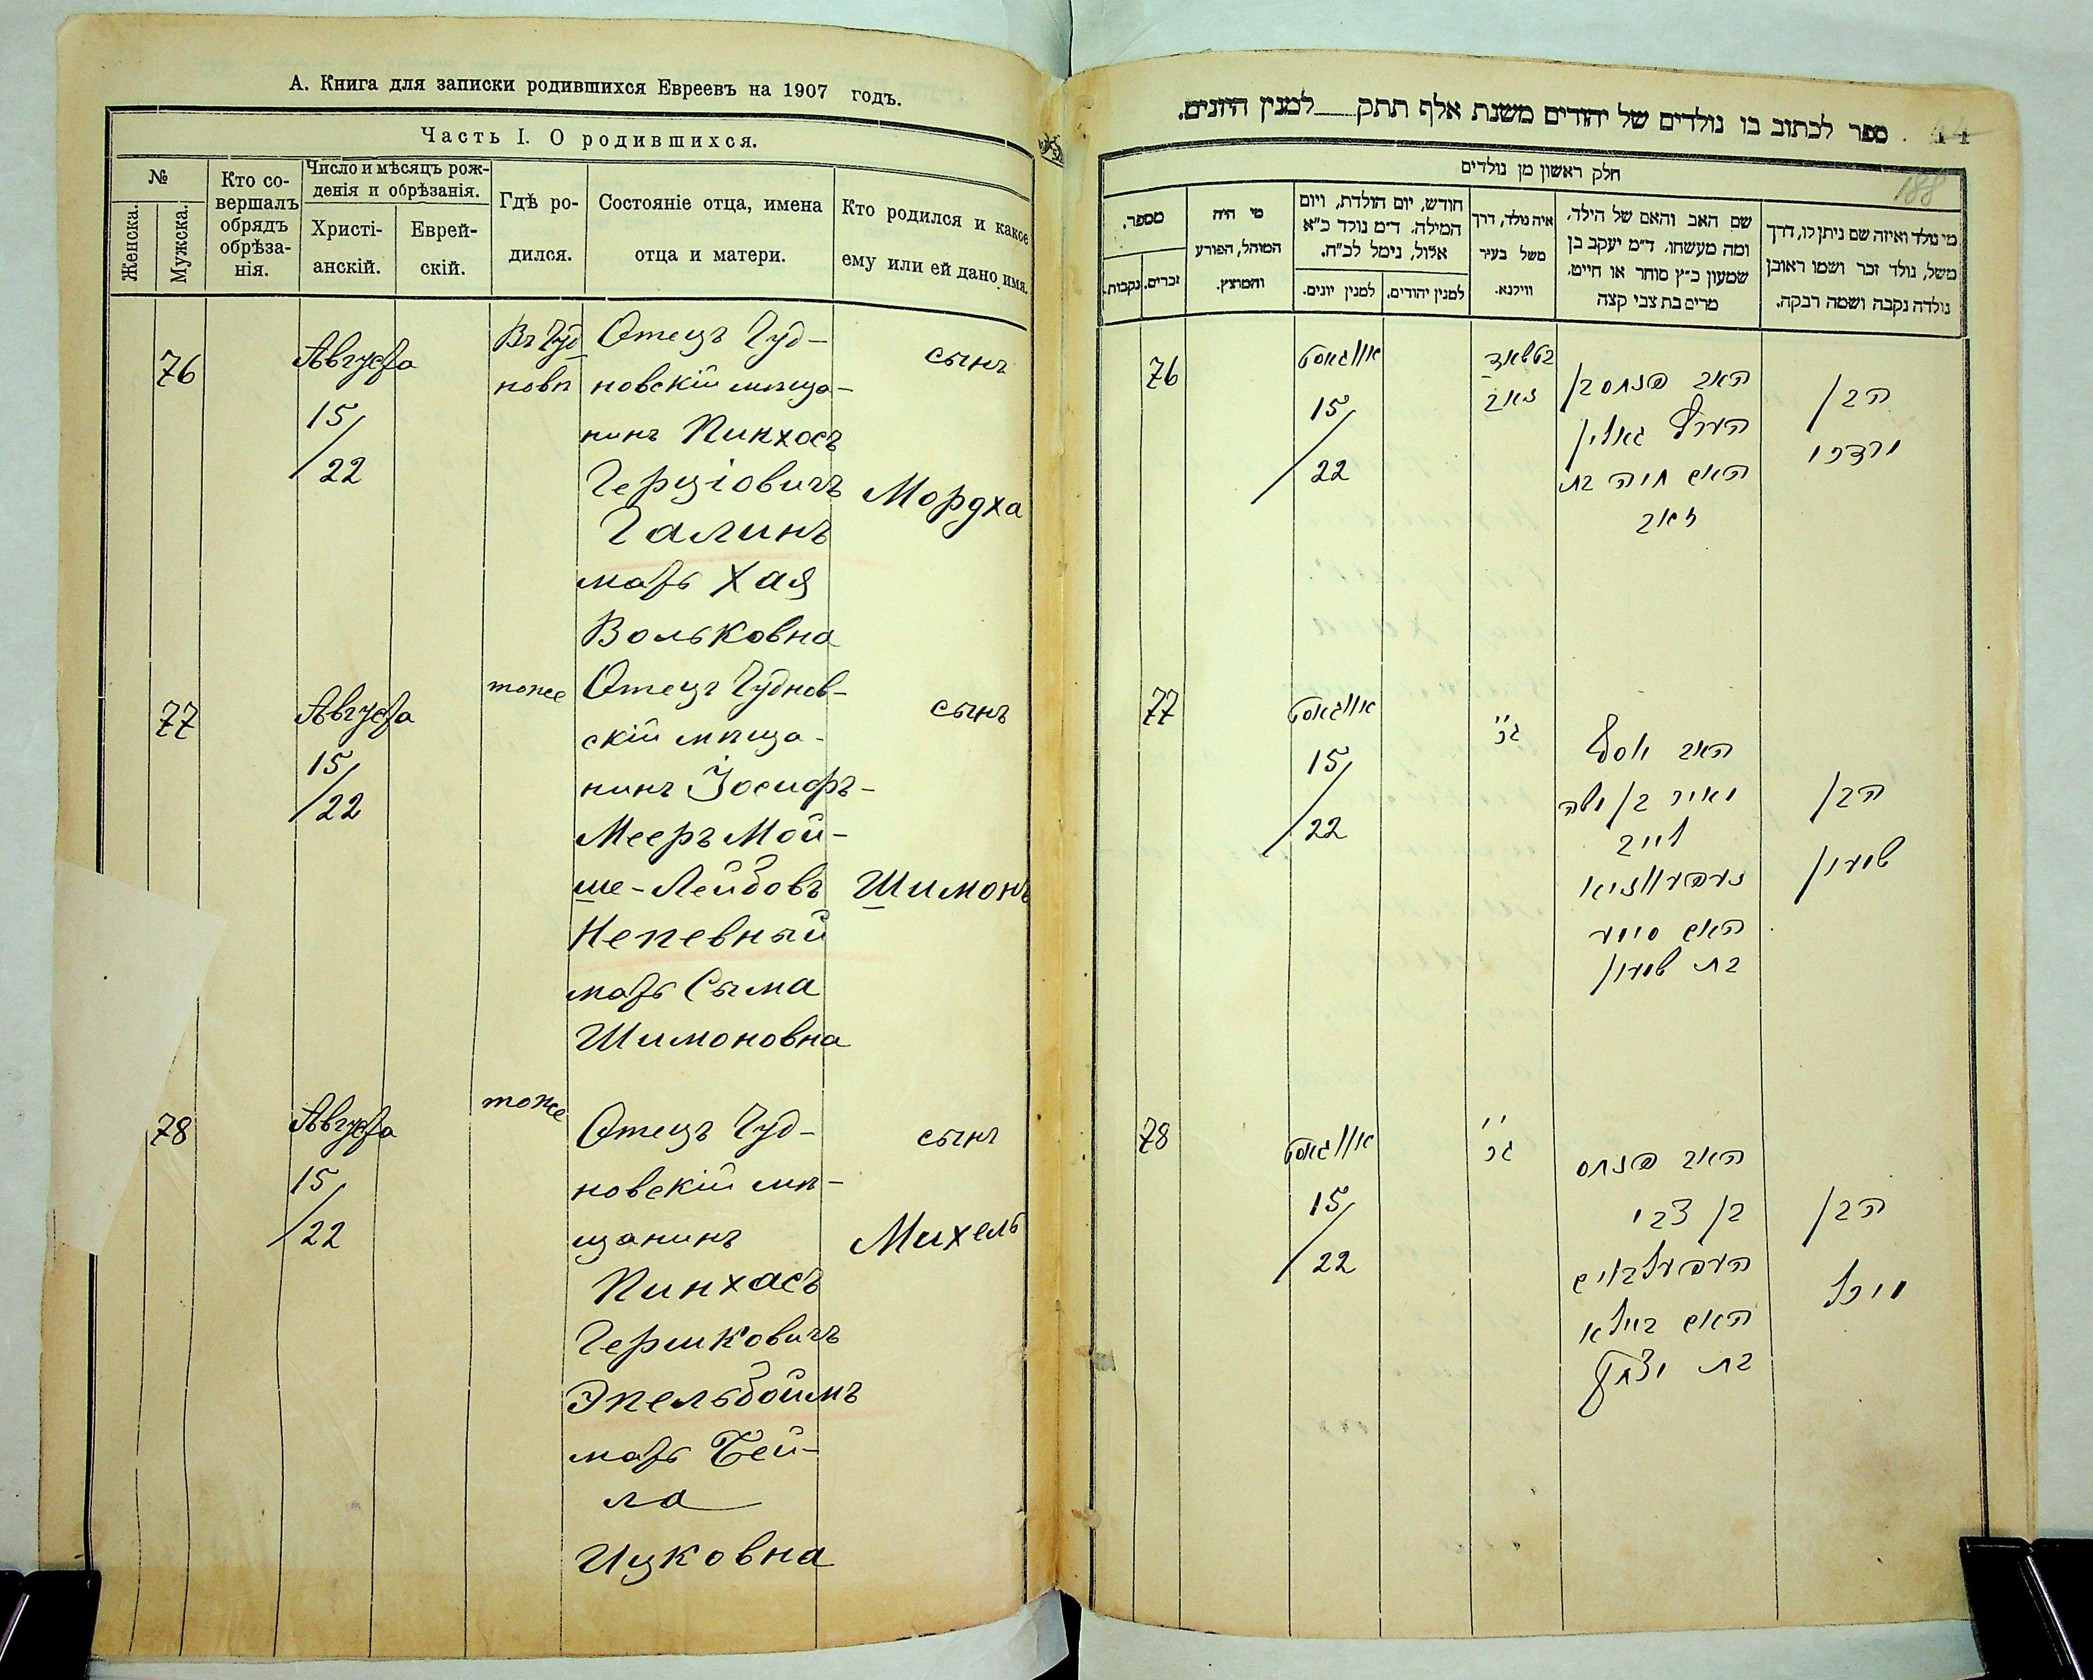 А. Книга для записки родившихся Евреевъ на 1907 годъ.
Часть I. О родившихся.
№
Женска.
Мужска.
Кто со-
вершалъ
обрядъ
обрѣза-
нія.
Число и мѣсяцъ рож-
денія и обрѣзанія.
Христі-
анскій.
Еврей-
скій.
Гдѣ ро-
дился.
Состояніе отца, имена
отца и матери.
Кто родился и какое
ему или ей дано имя.
76
Августа
15/
/22
Въ Чуд
новѣ
Отецъ Чуд-
новскій мѣща-
нинъ Пинхосъ
Герціовичъ
Галинъ
мать Хая
Вольковна
сынъ
Мордха
77
Августа
15/
/22
тоже
Отецъ Чуднов-
скій мѣща-
нинъ Іосифъ-
Мееръ Мой-
ше-Лейбовъ
Непевный
мать Сыма
Шимоновна
сынъ
Шимонъ
78
Августа
15/
/22
тоже
Отецъ Чуд-
новскій мѣ-
щанинъ
Пинхасъ
Гершковичъ
Эпельбоймъ
мать Бей-
ла
Ицковна
сынъ
Михель
ספר לכתוב בו נולדים של יהודים משנת אלף תתק למנין היונים.
188
חלק ראשון מן נולדים
מספר.
זכרים.
נקבות.
מי היה
המוהל, הפורע
והמוצץ.
חודש, יום הולדת, ויום
המילה. ד״מ נולד כ״א
אלול, נימל לכ״ח.
למנין יונים.
למנין יהודים.
איה נולד, דרך
משל בעיר
ווילנא.
שם האב והאם של הילד,
ומה מעשהו. ד״מ יעקב בן
שמעון כ״ץ סוחר או חייט,
מרים בת צבי קצה
מי נולד ואיזה שם ניתן לו, דרך
משל, נולד זכר ושמו ראובן
נולדה נקבה ושמה רבקה.
76
אווגאסט
15/
/22
האב פנחס בן
הערץ גאלין
האם חיה בת
זאב
הבן
מרדכי
77
אווגאסט
15/
/22
גכ
האב יוסף
מאיר בן משה
לייב
האם סימע
בת שמעון
הבן
שמעון
78
אווגאסט
15/
/22
גכ
האב פנחס
בן צבי
האם ביילא
בת יצחק
הבן
מיכל